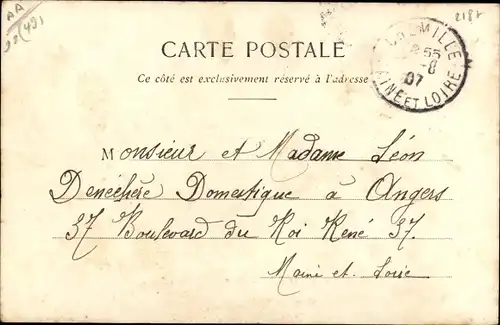 AA
(49)
2187
CARTE POSTALE
Ce côté est exclusivement réservé à l'adresse
MILLE
55
8
07
INE ET LOIRE
Monsieur et Madame Léon
Denéchère Domestique à Angers
37 Boulevard du Roi René 37.
Maine et Loire